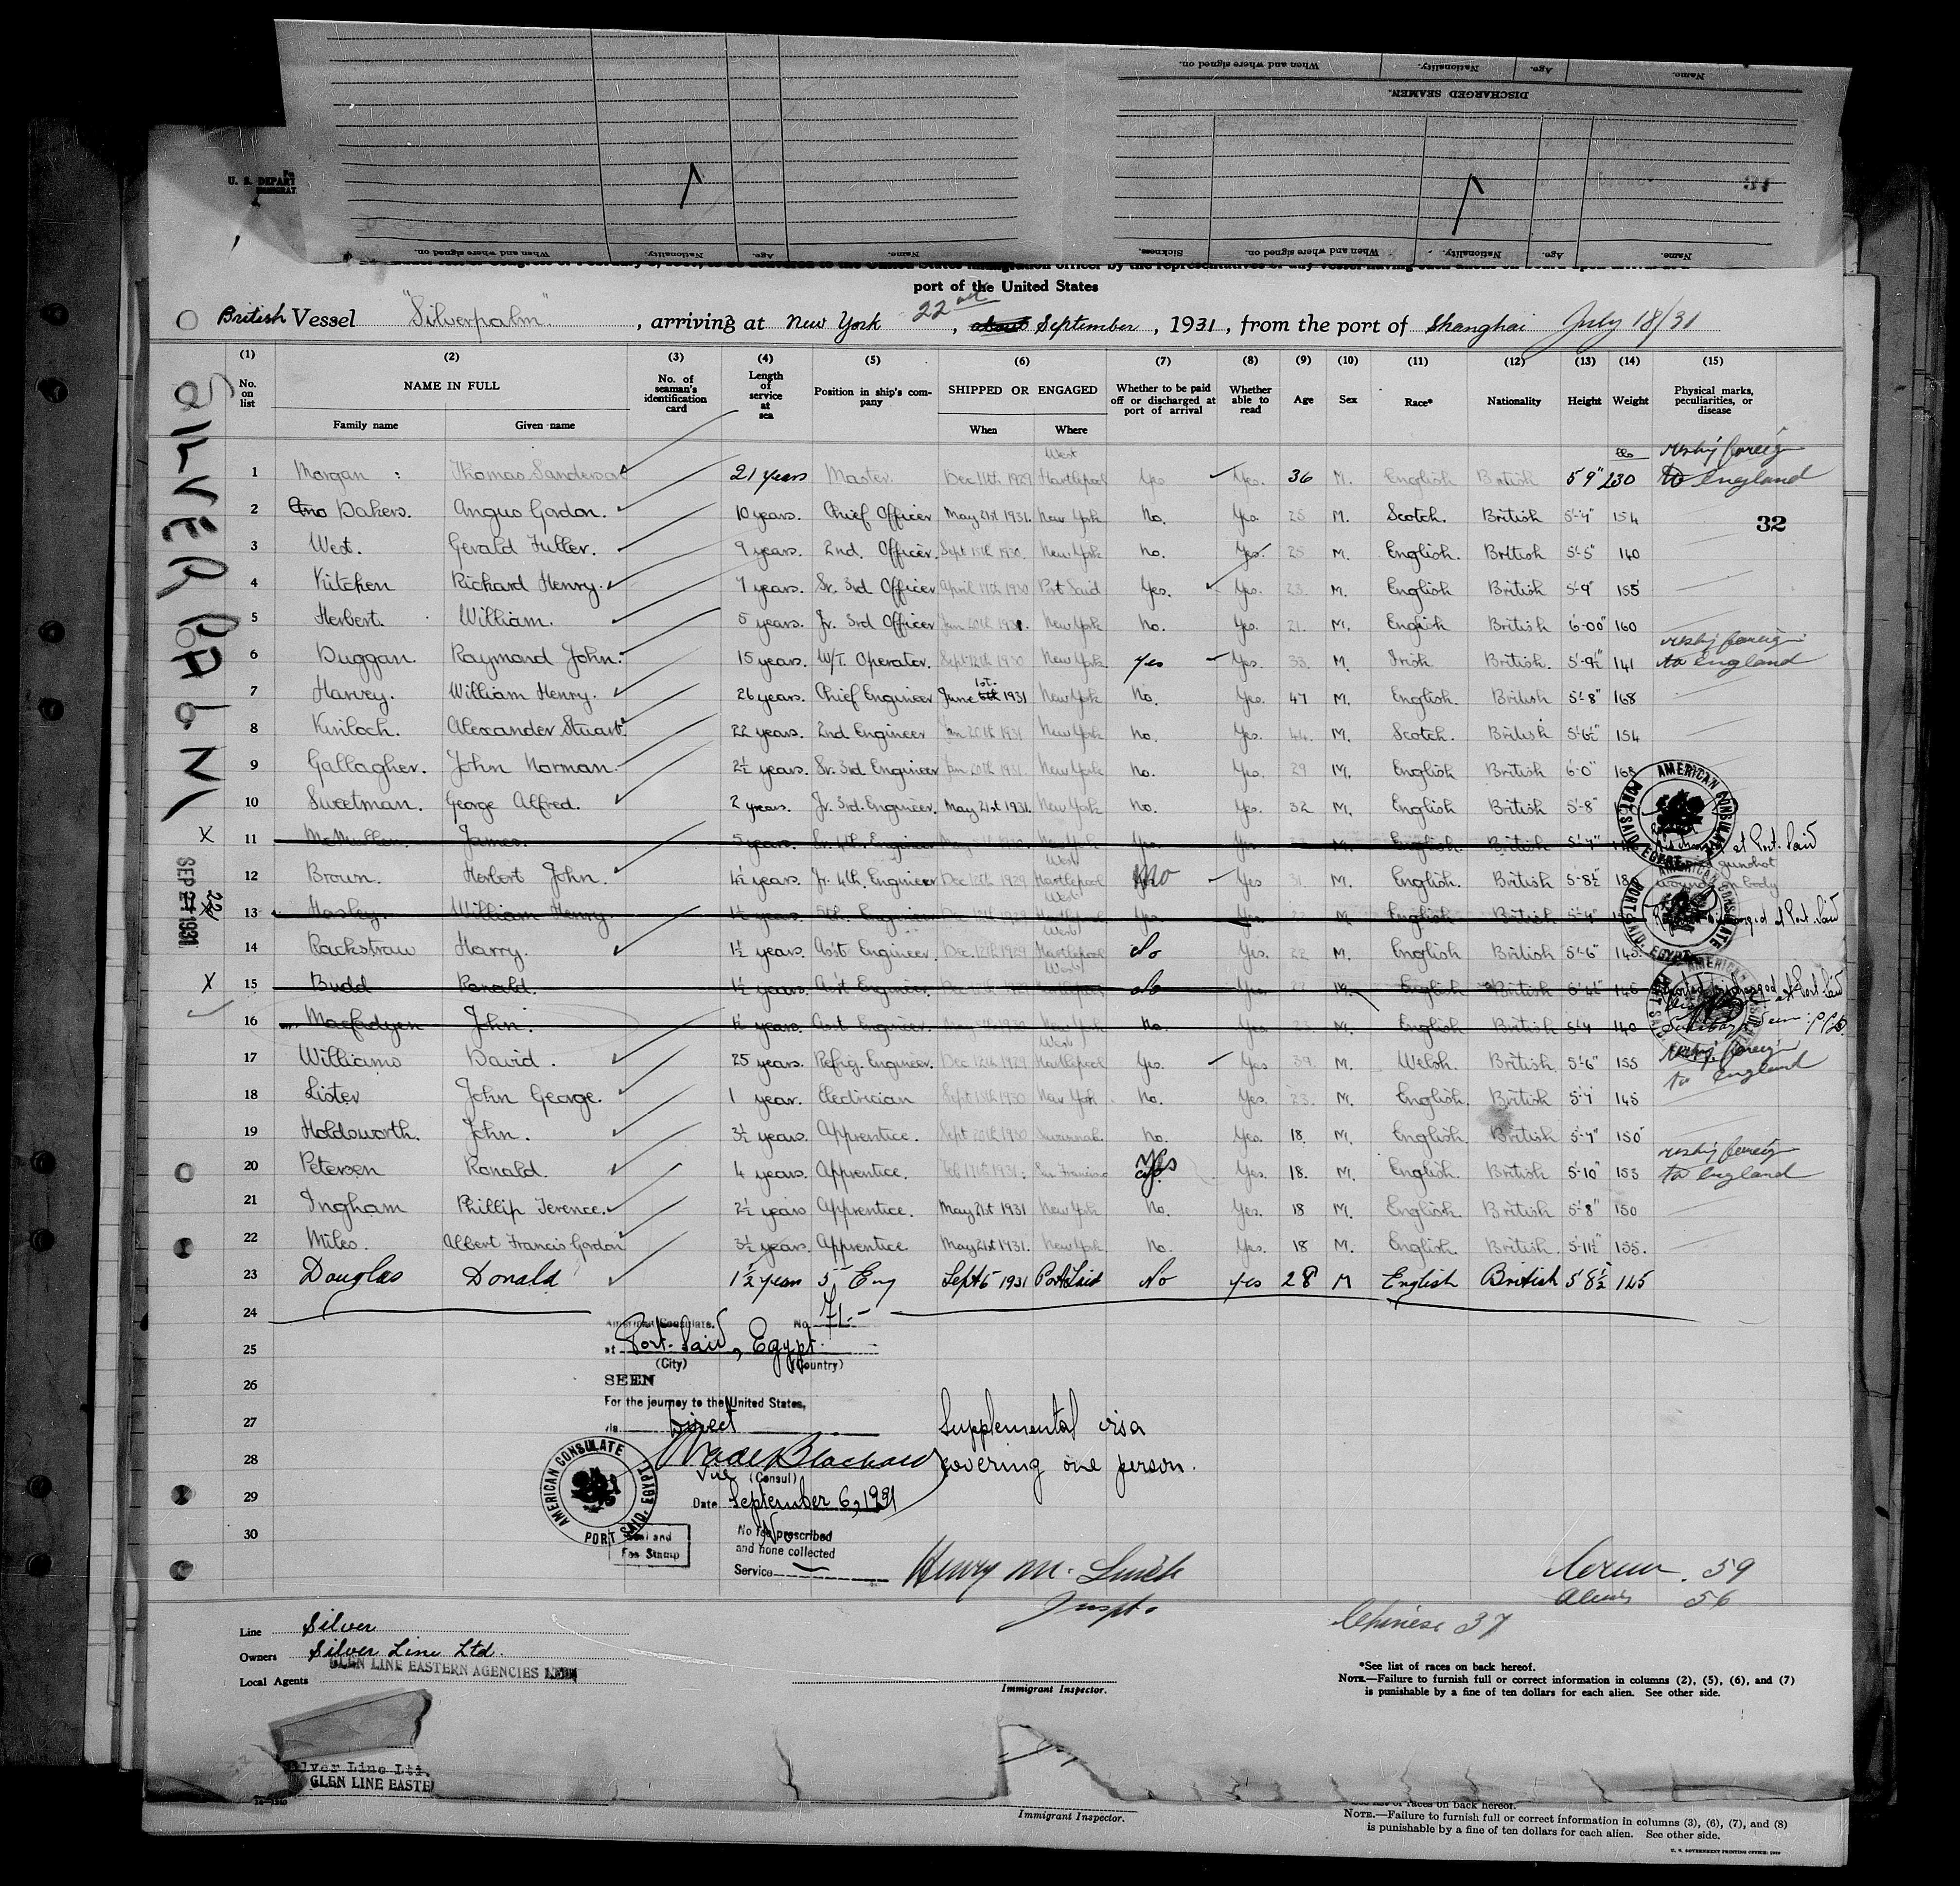 When and where signed on.
Nationality.
Age.
Name.
DISCHARGED SEAMEN.
31
When and where signed on.
Nationality.
Age.
Name.
Sickness.
When and where signed on.
Nationality.
Age.
Name.
U. S. DEPART
port of the United States
British Vessel "Silverpalm" , arriving at New York 22nd , about September , 1931 , from the port of Shanghai July 18/31
(1) (2) (3) (4) (5) (6) (7) (8) (9) (10) (11) (12) (13) (14) (15)
No. on list NAME IN FULL No. of seaman's identification card Length of service at sea Position in ship's company SHIPPED OR ENGAGED Whether to be paid off or discharged at port of arrival Whether able to read Age Sex Race* Nationality Height Weight Physical marks, peculiarities, or disease
Family name Given name When Where
1 Morgan Thomas Sanderson 21 years Master. Dec 11th 1929 West Hartlepool Yes Yes. 36 M. English British 5'9" 230 reship foreign to England
2 Dakers. Angus Gordon. 10 years. Chief Officer May 21st 1931. New York No. Yes. 25 M. Scotch. British 5'-7" 154
32
3 West. Gerald Fuller. 9 years. 2nd. Officer. Sept 15th 1930. New York No. Yes. 25 M. English. British 5'-5" 140
4 Kitchen Richard Henry. 7 years. Sr. 3rd Officer April 17th 1930 Port Said Yes. Yes. 23. M. English British 5'-9" 155
5 Herbert. William. 5 years. Jr. 3rd Officer Jan 20th 1931. New York No. Yes. 21. M. English British 6'-00" 160
6 Duggan. Raymond John. 15 years. W/T. Operator. Sept 12th 1930 New York Yes Yes. 33. M. Irish British. 5'-9½" 141 reship foreign to England
7 Harvey. William Henry. 26 years. Chief Engineer June 1st. 1931 New York No. Yes. 47 M. English. British 5'-8" 168
8 Kinloch. Alexander Stuart. 22 years. 2nd Engineer Jan 20th 1931 New York No. Yes. 44. M. Scotch. British 5'6½" 154
9 Gallagher. John Norman. 2½ years. Sr. 3rd Engineer Jan 20th 1931. New York No. Yes. 29 M. English British 6'-0" 168
10 Sweetman. George Alfred. 2 years. Jr. 3rd. Engineer. May 21st 1931. New York No. Yes. 32 M. English British 5'-8"
X 11 McMullen. James. 5 years. Sr. 4th. Engineer New York Yes. Yes M. English. British 5'-7" at Port Said
12 Brown. Herbert John. 4½ years. Jr. 4th. Engineer Dec 12th 1929 West Hartlepool No Yes 31. M. English. British 5'-8½" 180 gunshot wound on body
13 Hasley. William Henry. 1½ years. 5th. Engineer Dec 12th 1929 West Hartlepool Yes. Yes. M. English British 5'-9" Discharged at Port Said
14 Rackstraw Harry. 1½ years. Ass't Engineer Dec. 12th 1929 West Hartlepool No Yes. 22 M. English British 5'-6" 145.
X 15 Budd Ronald. 1½ years. Ass't Engineer. West Hartlepool No Yes M. English British 146 discharged at Port Said
16 Macfadyen John. 1½ years. Ass't Engineer. New York No. Yes M. English. British 5'-7 140
17 Williams David. 25 years. Refrig. Engineer. Dec 12th 1929 West Hartlepool Yes. Yes 39. M. Welsh. British. 5'-6" 155 reship foreign to England
18 Lister John George. 1 year. Electrician Sept 15th 1930 New York No. Yes. 23. M. English. British 5'-7 145
19 Holdsworth. John. 3½ years. Apprentice. Sept 20th 1930 Savannah. No. Yes. 18. M. English. British 5'-7" 150
20 Petersen Ronald. 4 years. Apprentice. Feb 17th 1931. San Francisco Yes Yes. 18. M. English. British 5'-10" 153 reship foreign to England
21 Ingham Phillip Terence. 2½ years Apprentice. May 21st 1931 New York No. Yes. 18 M. English. British 5'-8" 150
22 Miles. Albert Francis Gordon 3½ years. Apprentice May 21st 1931. New York No. Yes. 18 M. English. British. 5'-11½" 155.
23 Douglas Donald 1½ year 5 Eng Sept 6 1931 Port Said No yes 28 M English British 5'8½ 145
24
25
26
27
28
29
30
SILVERPALM
SEP 22 1931
American Consulate. No. 71.-
at Port-Said, Egypt.
(City) (Country)
SEEN
For the journey to the United States,
via Direct
Supplemental visa
covering one person.
Vice (Consul)
Date September 6, 1931
No fee prescribed
and none collected
Service
Seal and
Fee Stamp
AMERICAN CONSULATE PORT SAID, EGYPT
AMERICAN CONSULATE PORT SAID, EGYPT
AMERICAN CONSULATE PORT SAID, EGYPT
Henry M. Smith
Inspt.
Crew. 59
Aliens 56
Chinese 37
Line Silver
Owners Silver Line Ltd.
Local Agents GLEN LINE EASTERN AGENCIES
Immigrant Inspector.
*See list of races on back hereof.
NOTE.—Failure to furnish full or correct information in columns (2), (5), (6), and (7)
is punishable by a fine of ten dollars for each alien. See other side.
Silver Line Ltd.
GLEN LINE EASTE
Immigrant Inspector.
See list of races on back hereof.
NOTE.—Failure to furnish full or correct information in columns (3), (6), (7), and (8)
is punishable by a fine of ten dollars for each alien. See other side.
U. S. GOVERNMENT PRINTING OFFICE: 1929